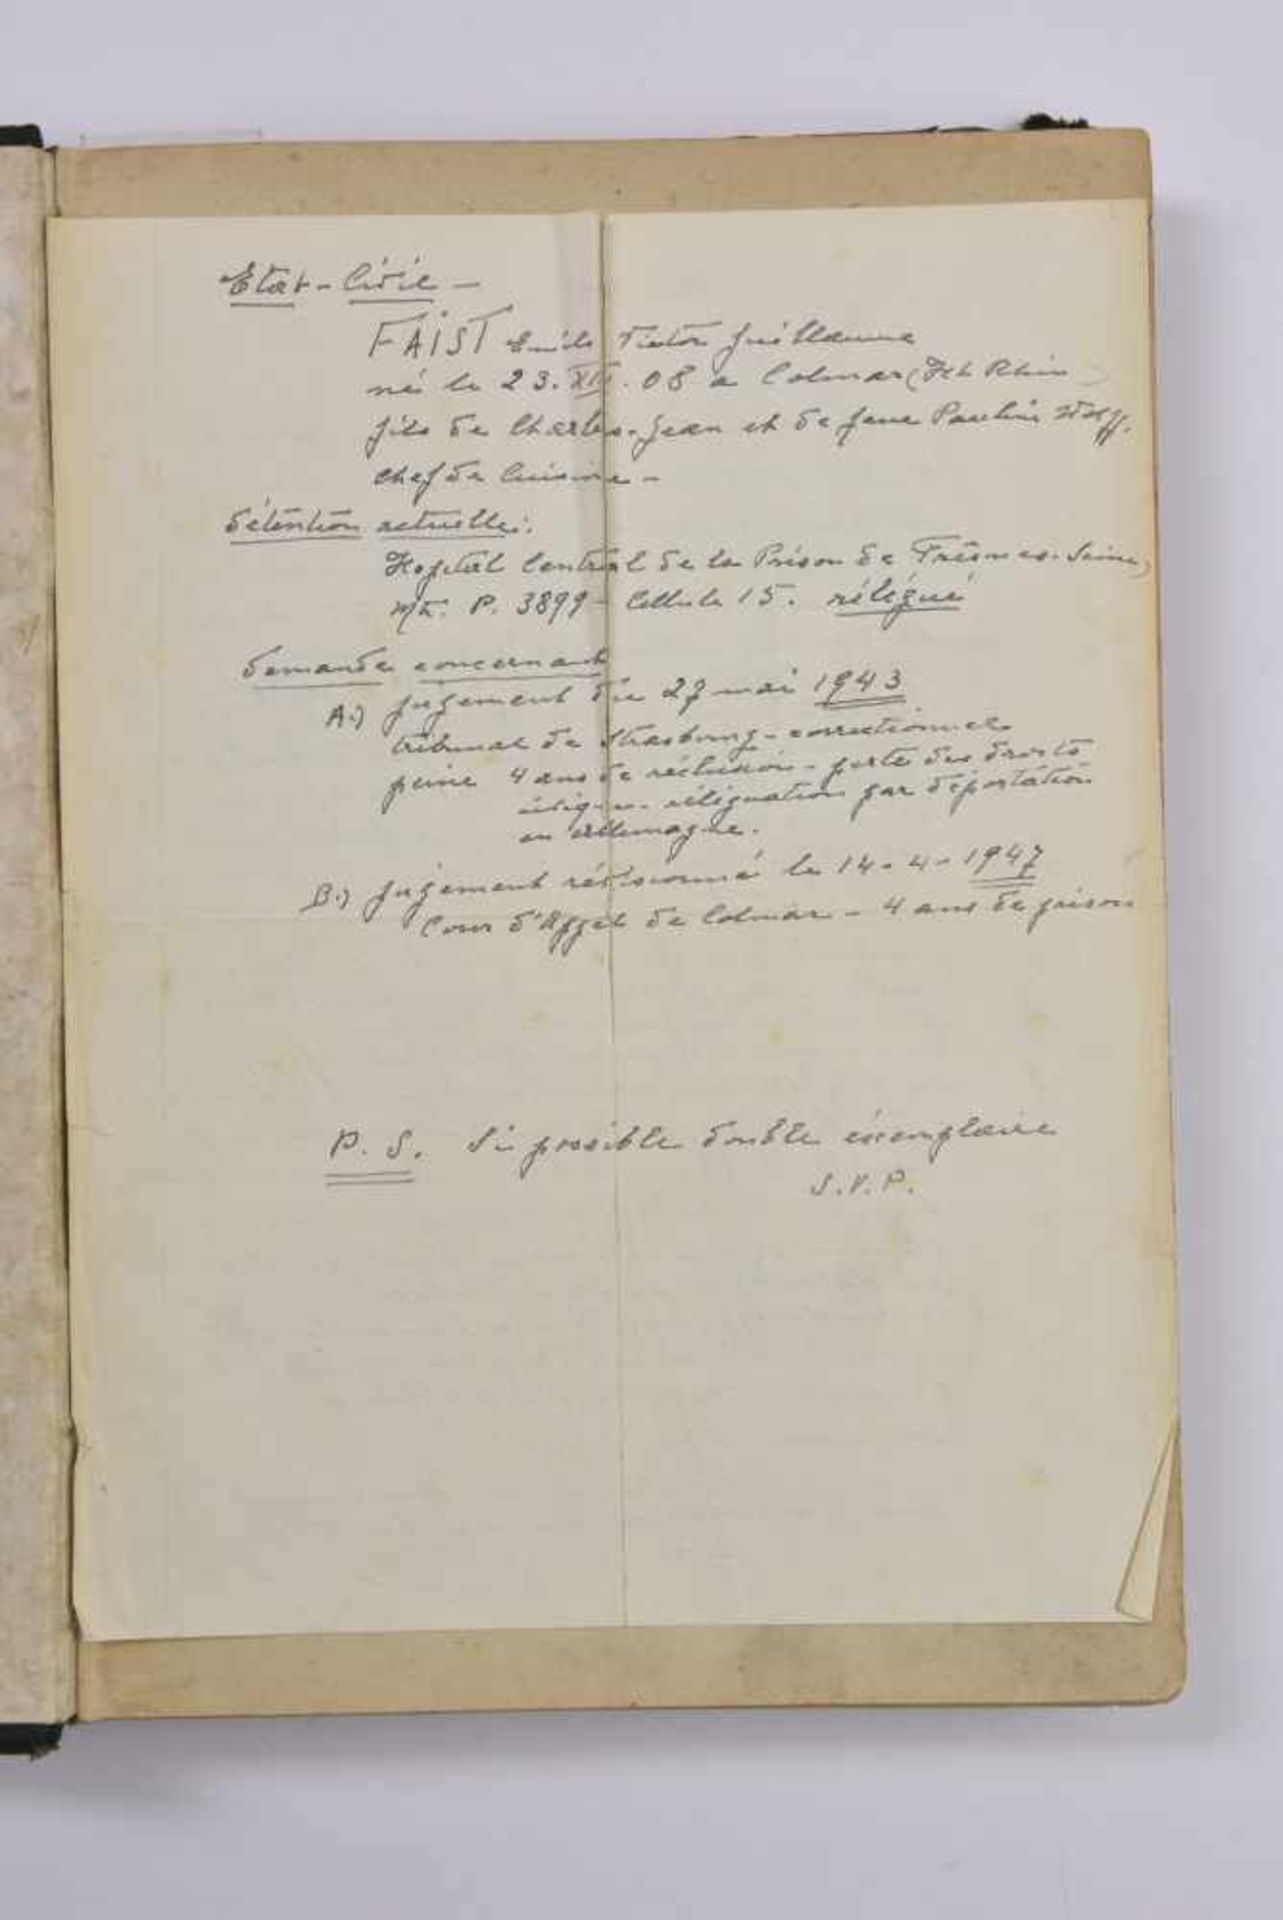 Etat-Civil -
FAiST Emile Victor Guillaume
né le 23. XII. 08 a Colmar (Ht Rhin)
fils de Charles-Jean et de feue Pauline Wolff.
chef de cuisine -
détention actuelle:
Hopital Central de la Prison de Fresnes-Seine,
Mt: P. 3899 - Cellule 15. rélégué
demande concernant
A.) jugement du 27 mai 1943
tribunal de Strasbourg - correctionnel
peine 4 ans de réclusion - perte des droits
rélégation par déportation
en Allemagne.
B.) jugement révisionné le 14-4-1947
Cour d'Appel de Colmar - 4 ans de prison
P. S. Si possible double éxemplaire
S.V.P.